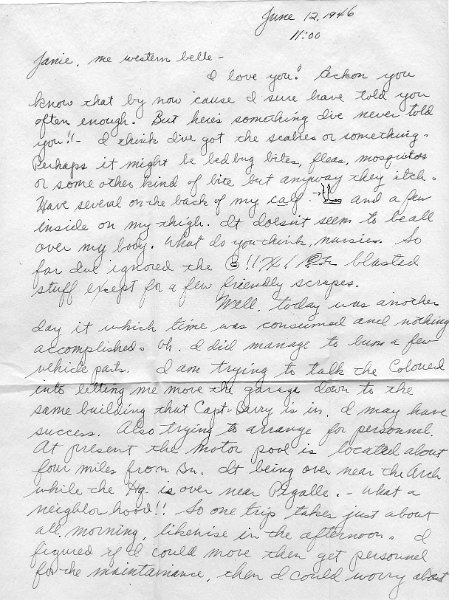 June 12, 1946
11:00
Janie, me western belle -
I love you! Reckon you
know that by now cause I sure have told you
often enough. But here's something I've never told
you!! - I think I've got the scabies or something.
Perhaps it might be bed bug bites, fleas, mosquitos
or some other kind of bite but anyway they itch.
Have several on the back of my calf and a few
inside on my thigh. It doesn't seem to be all
over my body. What do you think, nursie. So
far I've ignored the !! blasted
stuff except for a few friendly scrapes.
Well, today was another
day it which time was consumed and nothing
accomplished. Oh, I did manage to bum a few
vehicle parts. I am trying to talk the Colonel
into letting me move the garage down to the
same building that Capt. is in. I may have
success. Also trying to arrange for personnel.
At present the motor pool is located about
four miles from Bn. It being over near the Arch
while the Hq. is over near Pigalle. - What a
neighborhood!! So one trip takes just about
all morning, likewise in the afternoon. I
figured if I could move then get personnel
for the maintainance, then I could worry about